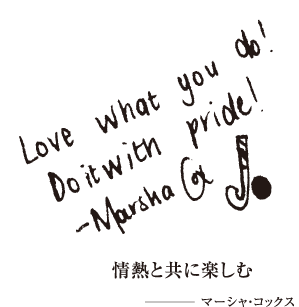 Love what you do!
Do it with pride!
-Marsha Cox
情熱と共に楽しむ
マーシャ・コックス